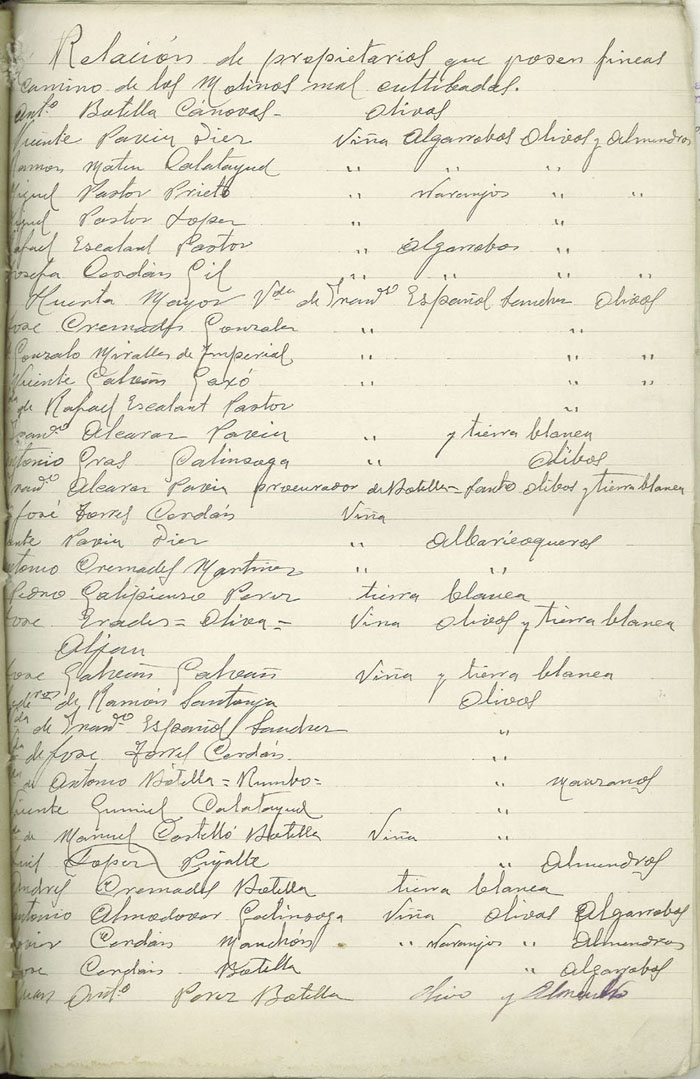 Relación de propietarios que posen fincas
camino de los Molinos mal cultibadas.
Antº Botella Cánovas - Olivos
Vicente Pavia Dier Viña Algarrobos Olivos y Almendros
Ramon Mateu Calatayud " " " "
Miguel Pastor Prieto " Naranjos " "
Miguel Pastor Loper " "
Rafael Escalant Pastor " Algarrobos "
Josefa Cerdán Gil " " " "
Huerta Mayor Vda de Francº Español Sancher Olivos
Jose Cremades Gonzaler " "
Gonzalo Miralles de Imperial " " "
Vicente Galvañ Gaxó " " "
de Rafael Escalant Pastor "
Francº Alcaraz Pavia " y tierra blanca
Antonio Gras Galinsoga " Olibos
Francº Alcaraz Pavia procurador de Botella = Santo Olibos y tierra blanca
José Torres Cerdán Viña
Pavia Dier " Albaricoqueros
Antonio Cremades Martiner " "
Pedro Calipienso Perez tierra blanca
Jose Erades = Oliva = Viña Olivos y tierra blanca
Aljau
Jose Galvañ Galvañ Viña y tierra blanca
de Ramón Santonja Olivos
da de Francº Español Sancher "
da de Jose Torres Cerdán "
de Antonio Botella = Rumbo = " Manzanos
Vicente Gumiel Calatayud "
de Manuel Castelló Botella Viña "
Luis Loper Pujalte " Almendros
Andrés Cremades Botella tierra blanca
Antonio Almodovar Galinsoga Viña Olivos Algarrobos
Javier Cerdán Manchón " Naranjos " Almendros
Jose Cerdán Botella " Algarrobos
Juan Antº Perez Botella Olivo y Almendro